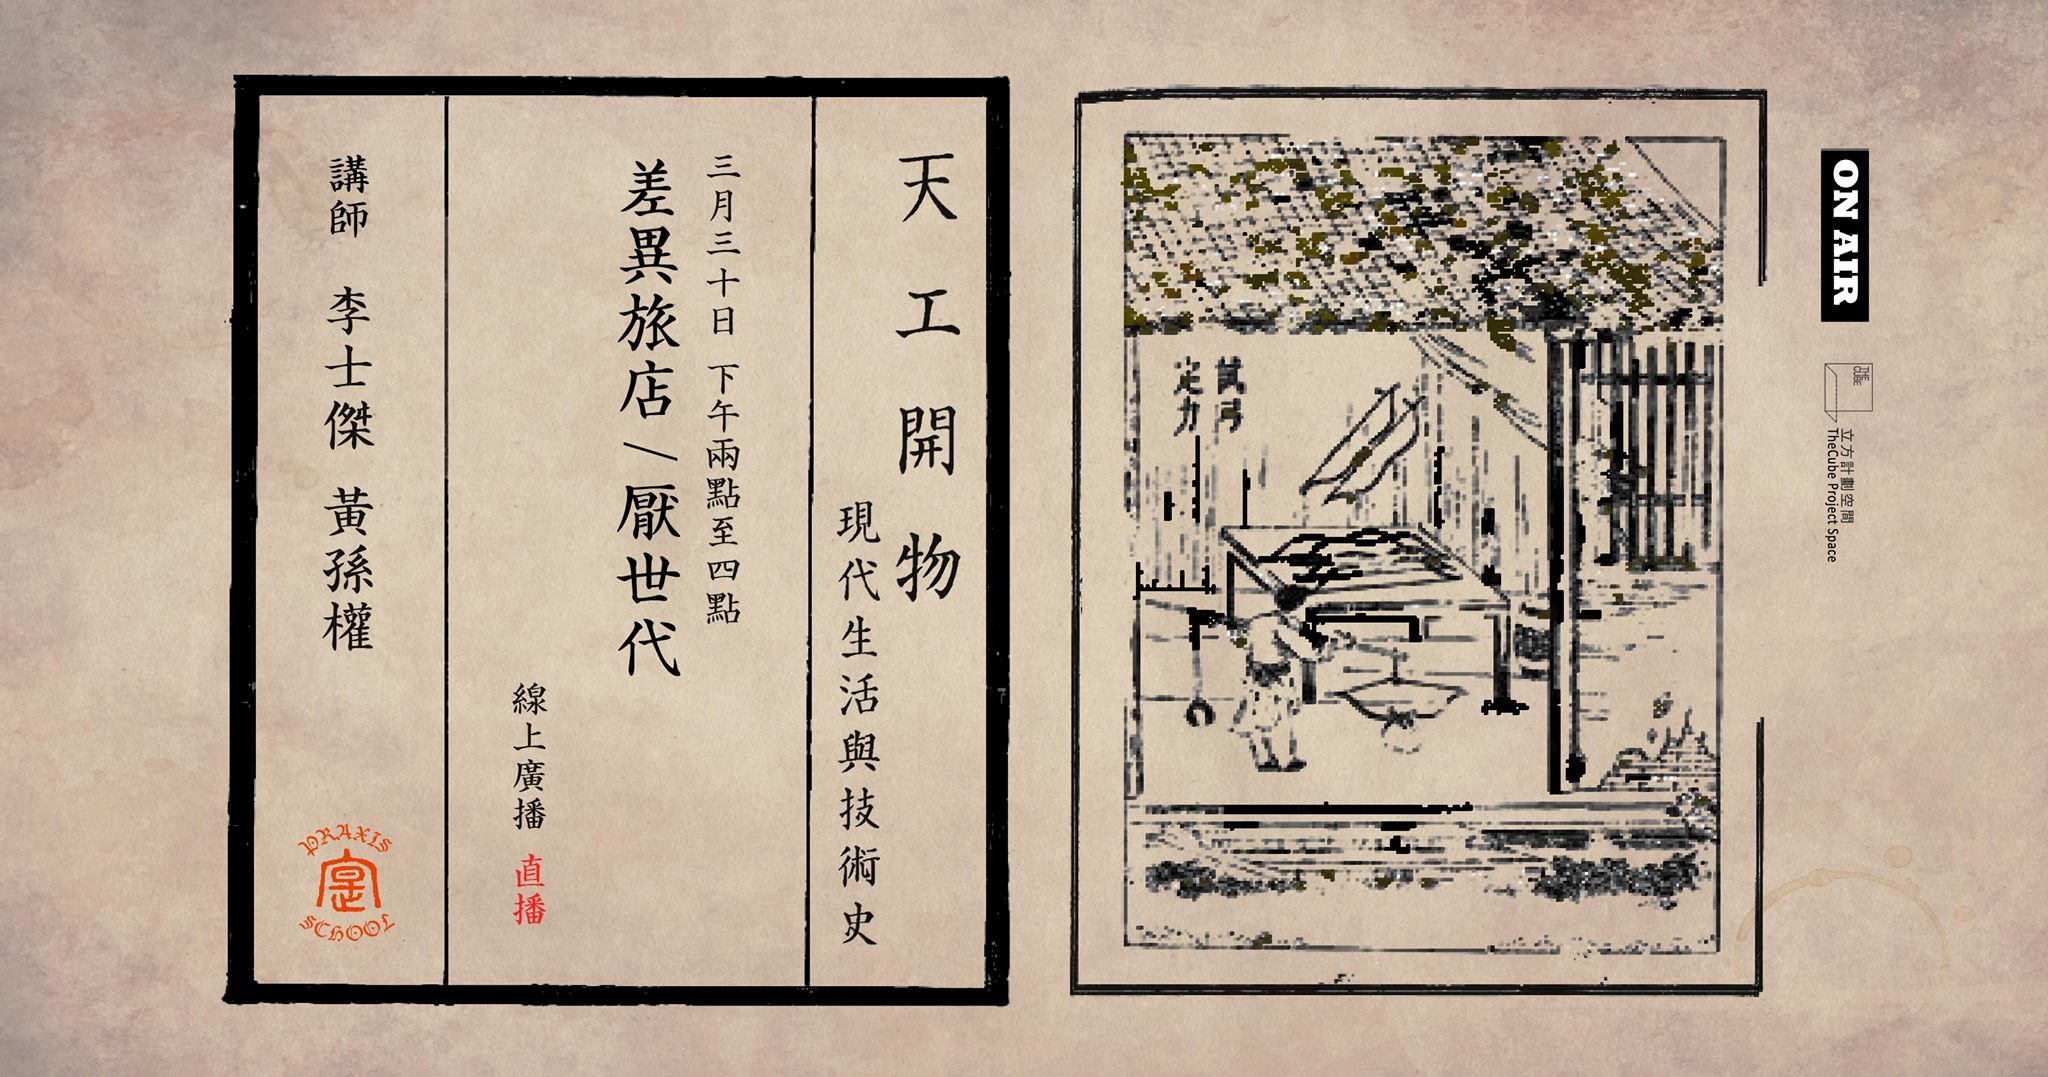 天工開物
現代生活與技術史
三月三十日 下午兩點至四點
差異旅店/厭世代
線上廣播 直播
講師 李士傑 黃孫權
PRAXIS
SCHOOL
試弓
定力
ON AIR
THE CUBE
立方計劃空間
TheCube Project Space